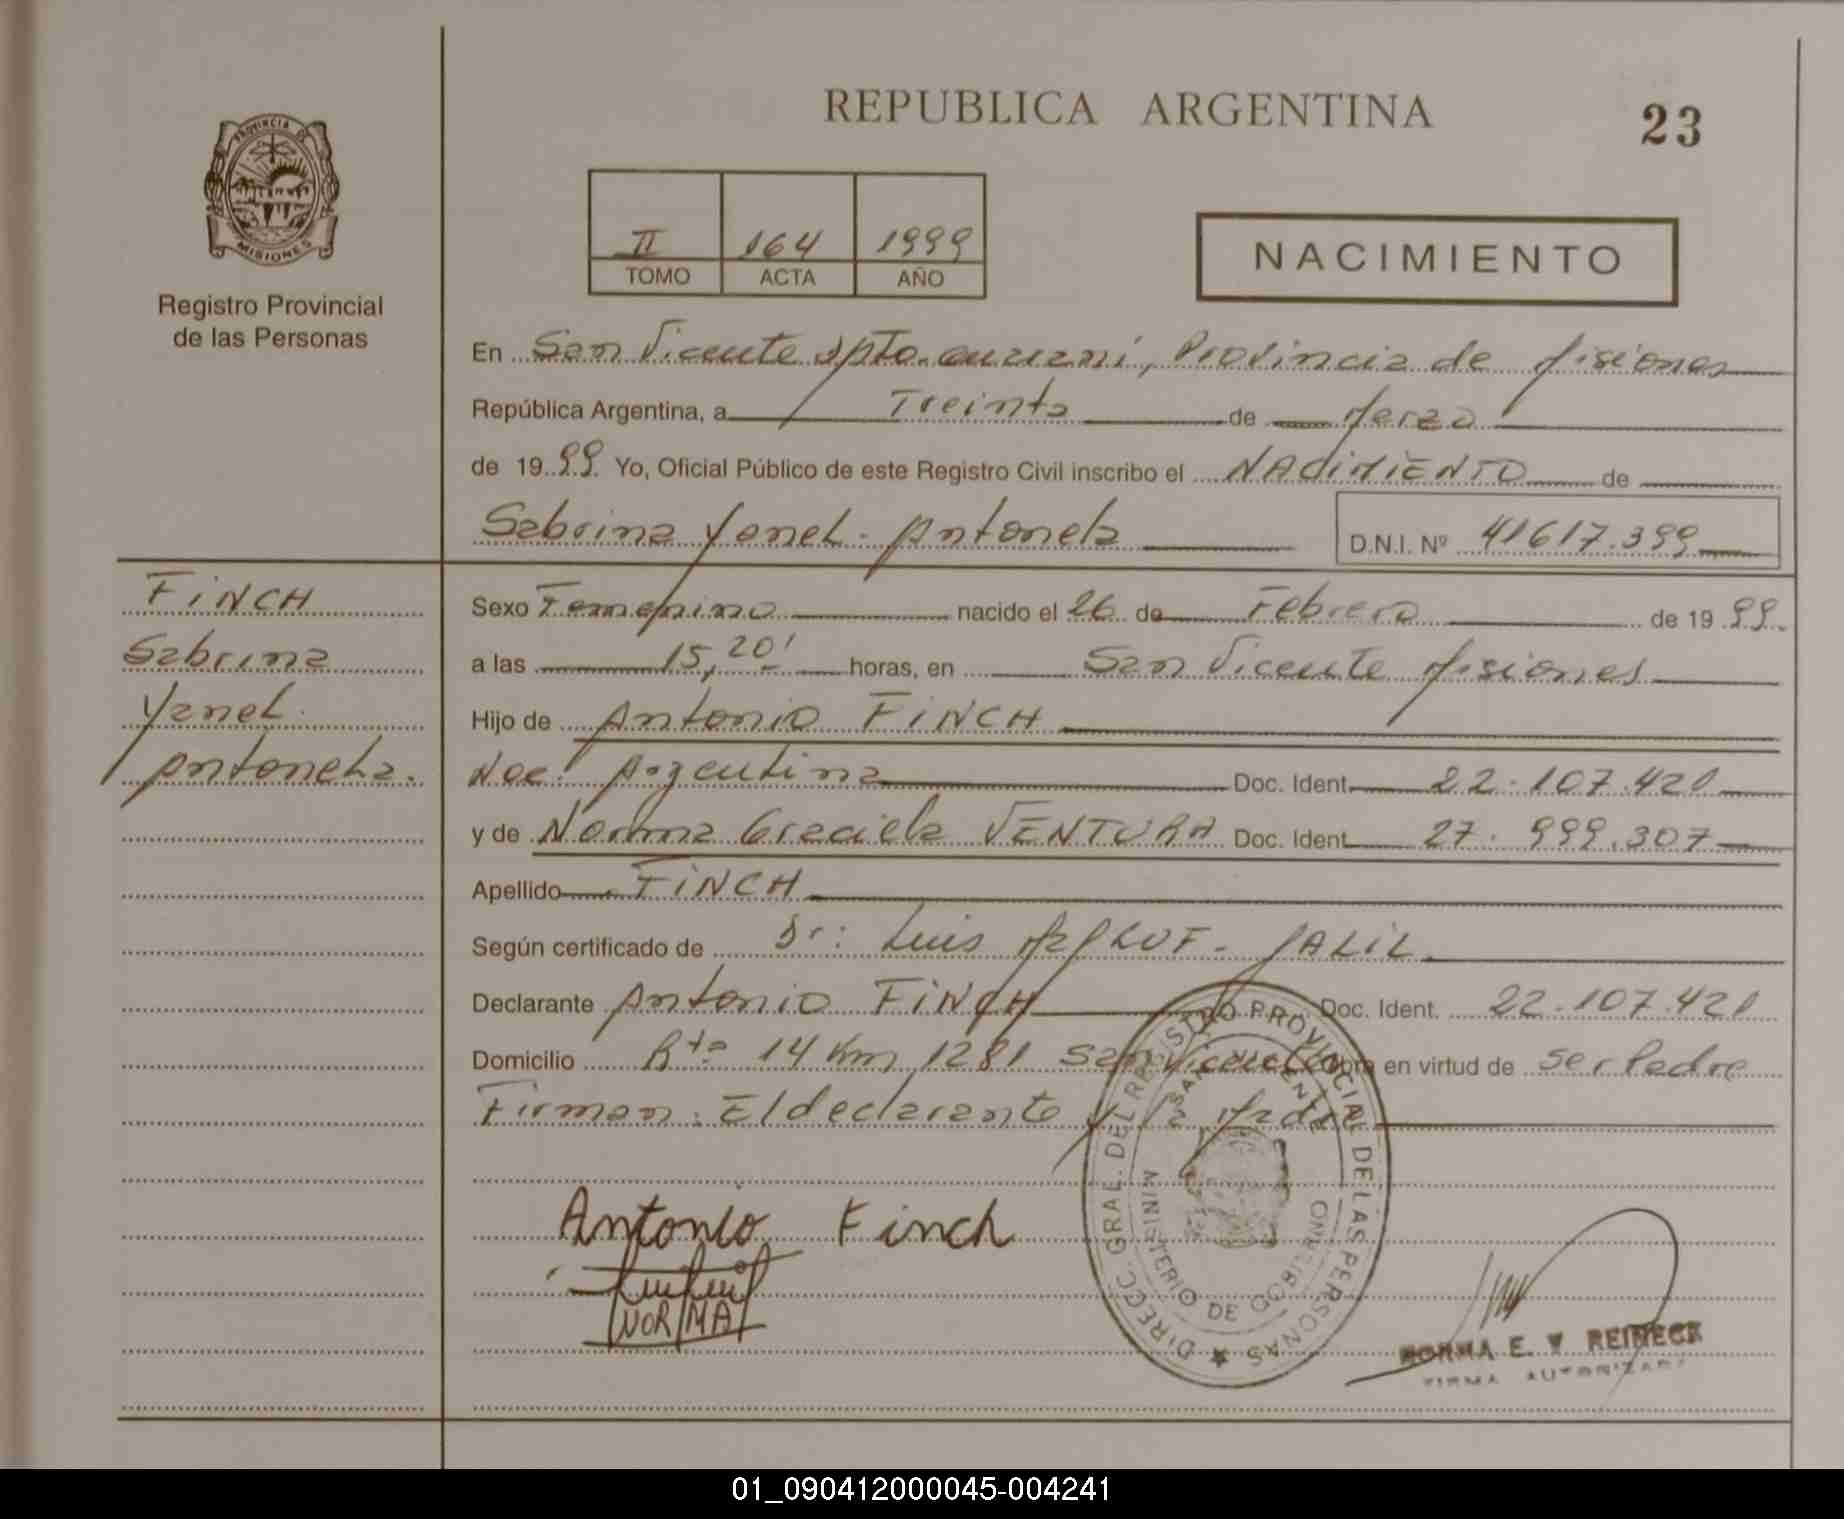 REPUBLICA ARGENTINA
23
PROVINCIA DE
MISIONES
Registro Provincial
de las Personas
II 164 1999
TOMO ACTA AÑO
NACIMIENTO
En San Vicente Dpto. Guaraní, Provincia de Misiones
República Argentina, a Treinta de Marzo
de 1999. Yo, Oficial Público de este Registro Civil inscribo el NACIMIENTO de
Sabrina Yanel Antonela
D.N.I. Nº 41617.399
FINCH
Sabrina
Yanel
Antonela.
Sexo Femenino nacido el 26 de Febrero de 1999.
a las 15,20' horas, en San Vicente Misiones
Hijo de Antonio FINCH
Nac. Argentina Doc. Ident. 22.107.421
y de Norma Graciela VENTURA Doc. Ident. 27.999.307
Apellido FINCH
Según certificado de Dr: Luis JALIL
Declarante Antonio FINCH Doc. Ident. 22.107.421
Domicilio Rta 14 Km 1281 San Vicente Obra en virtud de ser Padre
Firman: El declarante y la Madre
Antonio Finch
NORMA
DIRECC. GRAL. DEL REGISTRO PROVINCIAL DE LAS PERSONAS
SAN VICENTE
MINISTERIO DE GOBIERNO
NORMA E. V REINECK
FIRMA AUTORIZADA
01_090412000045-004241